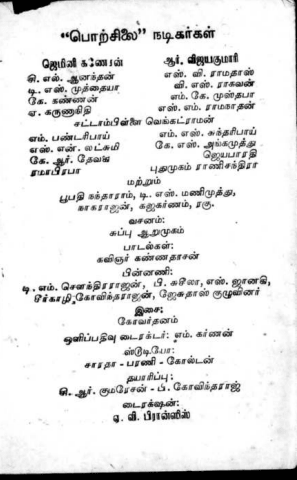 “பொற்சிலை” நடிகர்கள்
ஜெமினி கணேசன் ஆர். விஜயகுமாரி
சி. எல். ஆனந்தன் எஸ். வி. ராமதாஸ்
டி. எஸ். முத்தையா வி. எஸ். ராகவன்
கே. கண்ணன் எம். கே. முஸ்தபா
ஏ. கருணாநிதி எஸ். எம். ராமநாதன்
சட்டாம்பிள்ளை வெங்கட்ராமன்
எம். பண்டரிபாய் எம். எஸ். சுந்தரிபாய்
எஸ். என். லட்சுமி கே. எஸ். அங்கமுத்து
கே. ஆர். தேவகி ஜெயபாரதி
ரமாபிரபா புதுமுகம் ராணிசந்திரா
மற்றும்
பூபதி நந்தாராம், டி. எஸ். மணிமுத்து,
நாகராஜன், கஜகர்ணம், ரகு.
வசனம்:
சுப்பு ஆறுமுகம்
பாடல்கள்:
கவிஞர் கண்ணதாசன்
பின்னணி:
டி. எம். சௌந்திரராஜன், பி. சுசீலா, எஸ். ஜானகி,
சீர்காழி கோவிந்தராஜன், ஜேசுதாஸ் குழுவினர்
இசை:
கோவர்தனம்
ஒளிப்பதிவு டைரக்டர்: எம். கர்ணன்
ஸ்டூடியோ:
சாரதா - பரணி - கோல்டன்
தயாரிப்பு:
சி. ஆர். குமரேசன் - பி. கோவிந்தராஜ்
டைரக்‌ஷன்:
ஏ. வி. பிரான்ஸிஸ்